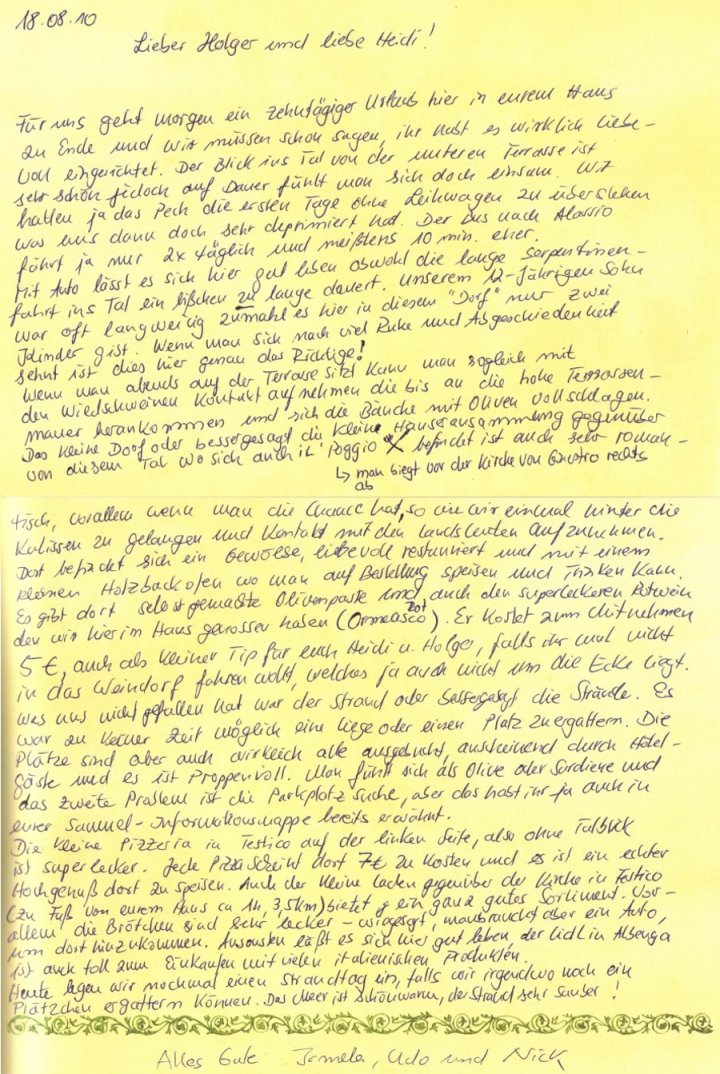 18.08.10
Lieber Holger und liebe Heidi!
Für uns geht morgen ein zehntägiger Urlaub hier in eurem Haus
zu Ende und wir müssen schon sagen, ihr habt es wirklich liebe-
voll eingerichtet. Der Blick ins Tal von der unteren Terrasse ist
sehr schön jedoch auf Dauer fühlt man sich doch einsam. Wir
hatten ja das Pech die ersten Tage ohne Leihwagen zu überstehen
was uns dann doch sehr deprimiert hat. Der Bus nach Alassio
fährt ja nur 2x täglich und meißtens 10 min. eher.
Mit Auto lässt es sich hier gut leben obwohl die lange Serpentinen-
fahrt ins Tal ein bißchen zu lange dauert. Unserem 12-jährigen Sohn
war oft langweilig zumahl es hier in diesem "Dorf" nur zwei
Kinder gibt. Wenn man sich nach viel Ruhe und Abgeschiedenheit
sehnt ist dies hier genau das Richtige!
Wenn man abends auf der Terrasse sitzt kann man sogleich mit
den Wildschweinen Kontakt aufnehmen die bis an die hohe Terrassen-
mauer herankommen und sich die Bäuche mit Oliven vollschlagen.
Das kleine Dorf oder bessergesagt die kleine Hausansammlung gegenüber
von diesem Tal wo sich auch il Poggio befindet ist auch sehr roman-
↳ man biegt vor der Kirche von Ginestro rechts
ab
tisch, vorallem wenn man die Chance hat, so wie wir einmal hinter die
Kulissen zu gelangen und Kontakt mit den Landsleuten aufzunehmen.
Dort befindet sich ein Gewölbe, liebevoll restauriert und mit einem
kleinen Holzbackofen wo man auf Bestellung speisen und trinken kann.
Es gibt dort selbstgemachte Olivenpaste und auch den superleckeren Rotwein
den wir hier im Haus genossen haben (Ormeasco Rot). Er kostet zum Mitnehmen
5 €, auch als kleiner Tip für euch Heidi u. Holger, falls ihr mal nicht
in das Weindorf fahren wollt, welches ja auch nicht um die Ecke liegt.
Was uns nicht gefallen hat war der Strand oder bessergesagt die Strände. Es
war zu keiner Zeit möglich eine Liege oder einen Platz zu ergattern. Die
Plätze sind aber auch wirklich alle ausgebucht, anscheinend durch Hotel-
gäste und es ist Proppenvoll. Man fühlt sich als Olive oder Sardiene und
das zweite Problem ist die Parkplatzsuche, aber das habt ihr ja auch in
eurer Sammel-Informationsmappe bereits erwähnt.
Die kleine Pizzeria in Testico auf der linken Seite, also ohne Talblick
ist superlecker. Jede Pizza scheint dort 7€ zu kosten und es ist ein echter
Hochgenuß dort zu speisen. Auch der kleine Laden gegenüber der Kirche in Testico
(zu Fuß von eurem Haus ca 1h, 3,5km) bietet ein ganz gutes Sortiment. Vor-
allem die Brötchen sind sehr lecker - wiegesagt, man braucht aber ein Auto,
um dort hinzukommen. Ansonsten läßt es sich hier gut leben der Lidl in Albenga
ist auch toll zum Einkaufen mit vielen italienischen Produkten.
Heute legen wir nochmal einen Strandtag ein, falls wir irgendwo noch ein
Plätzchen ergattern können. Das Meer ist schönwarm, der Strand sehr sauber!
Alles Gute Udo und Nick